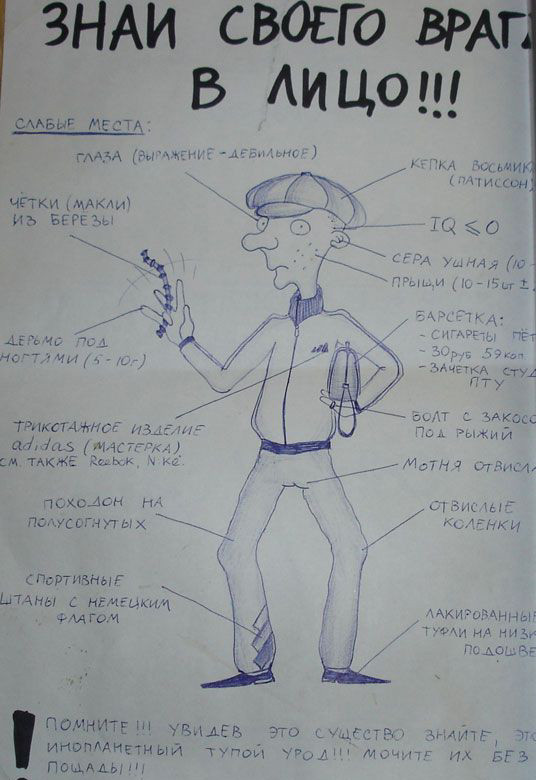 ЗНАЙ СВОЕГО ВРАГА
В ЛИЦО!!!
СЛАБЫЕ МЕСТА:
ГЛАЗА (ВЫРАЖЕНИЕ - ДЕБИЛЬНОЕ)
КЕПКА ВОСЬМИК
(ПАТИССОН)
ЧЁТКИ (МАКЛИ)
ИЗ БЕРЕЗЫ
IQ ⩽ 0
СЕРА УШНАЯ (10-
ПРЫЩИ (10-15шт ±
ДЕРЬМО ПОД
НОГТЯМИ (5-10г)
БАРСЕТКА:
- СИГАРЕТЫ ПЁТ
- 30 руб 59 коп
- ЗАЧЕТКА СТУД
ПТУ
ТРИКОТАЖНОЕ ИЗДЕЛИЕ
adidas (МАСТЕРКА)
СМ. ТАКЖЕ Reebok, Nike.
БОЛТ С ЗАКОСО
ПОД РЫЖИЙ
МОТНЯ ОТВИСЛА
ПОХОДОН НА
ПОЛУСОГНУТЫХ
ОТВИСЛЫЕ
КОЛЕНКИ
СПОРТИВНЫЕ
ШТАНЫ С НЕМЕЦКИМ
ФЛАГОМ
ЛАКИРОВАННЫЕ
ТУФЛИ НА НИЗК
ПОДОШВЕ
! ПОМНИТЕ!!! УВИДЕВ ЭТО СУЩЕСТВО ЗНАЙТЕ, ЭТО
ИНОПЛАНЕТНЫЙ ТУПОЙ УРОД!!! МОЧИТЕ ИХ БЕЗ
ПОЩАДЫ!!!